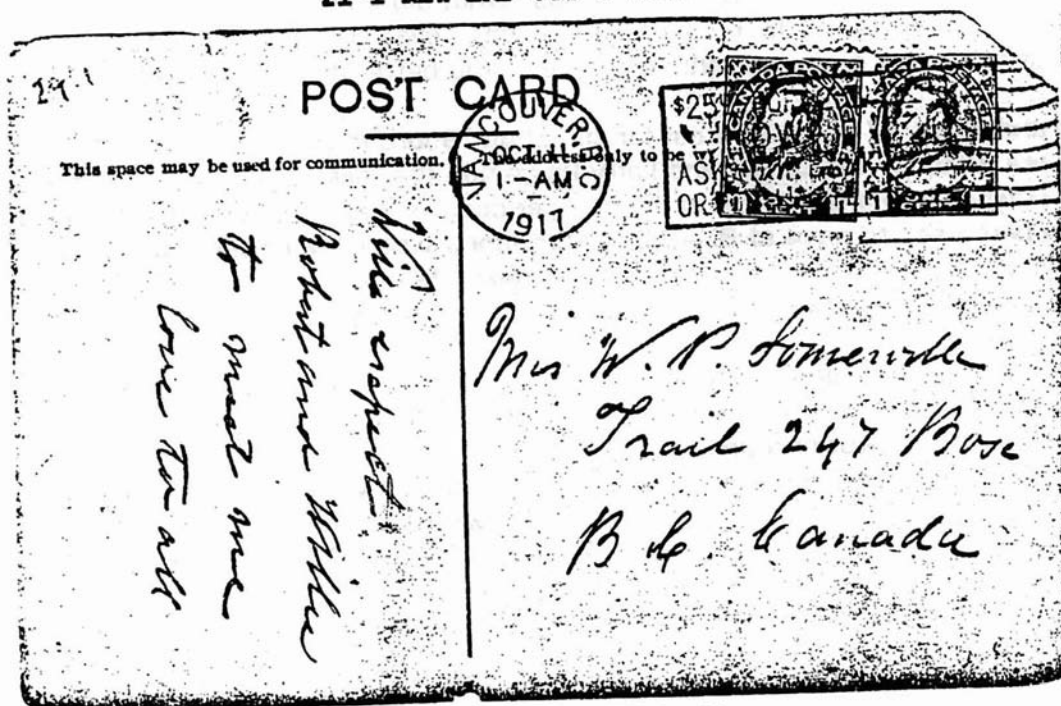 29.1
POST CARD
This space may be used for communication.
The address only to be
VANCOUVER B.C
OCT 11
1-AM
1917
$25
AS
OR
CANADA POSTAGE
Will expect
Robert and Willie
to meet me
love to all
Mrs W. P. Somerville
Trail 247 Box
B C. Canada